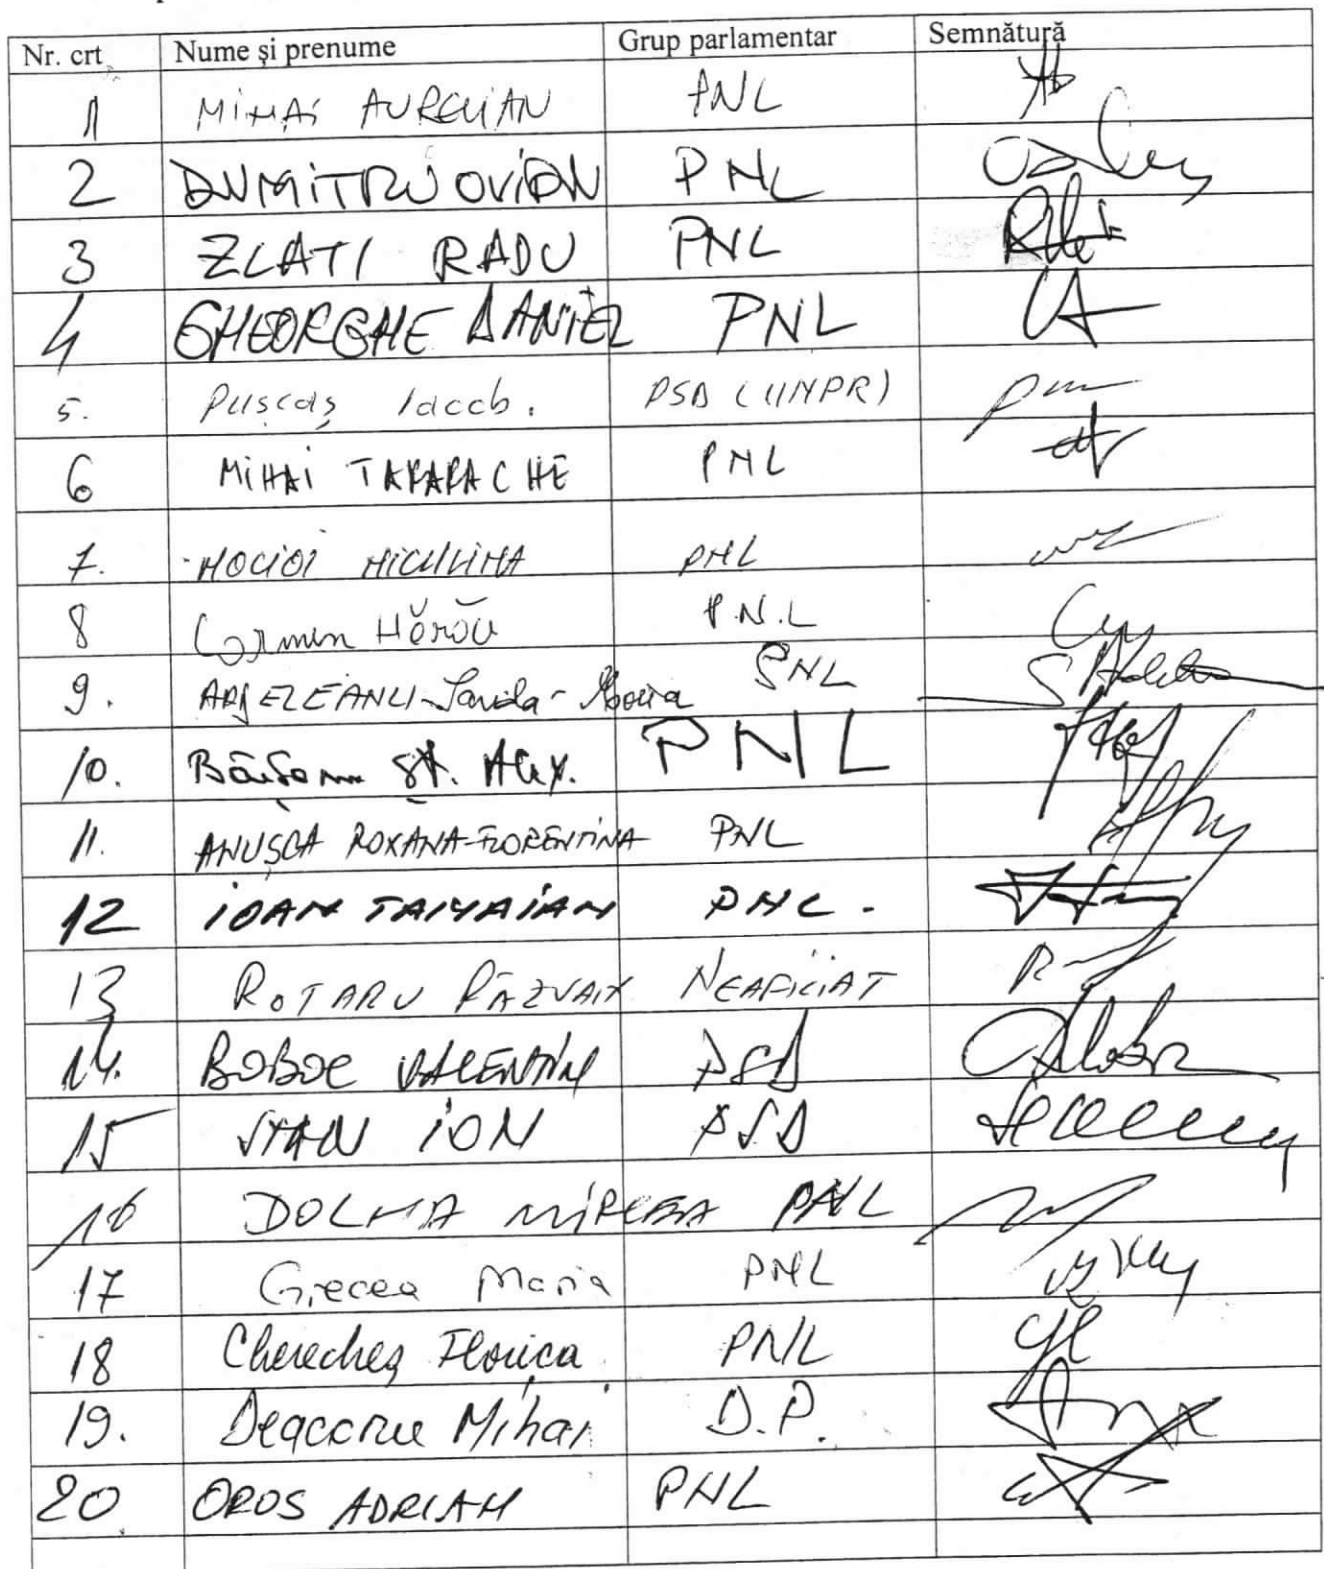 Nr. crt Nume și prenume Grup parlamentar Semnătură
1 MIHAI AURELIAN PNL
2 DUMITRU OVIDIU PNL
3 ZLATI RADU PNL
4 GHEORGHE DANIEL PNL
5. Pușcaș Iacob. PSD (UNPR)
6 MIHAI TARARACHE PNL
7. MOCIOI NICULINA PNL
8 Carmen Hărău P.N.L
9. ARGEZEANU-Sanda-Maria PNL
10. Băișanu Șt. Alex. PNL
11. ANUȘCA ROXANA-FLORENTINA PNL
12 IOAN TAMAIAN PNL.
13 ROTARU RĂZVAN NEAFILIAT
14. BOBOC VALENTIN PSD
15 STAN ION PSD
16 DOLHA MIRCEA PNL
17 Grecea Maria PNL
18 Cherecheș Florica PNL
19. Deaconu Mihai D.P.
20. OROS ADRIAN PNL